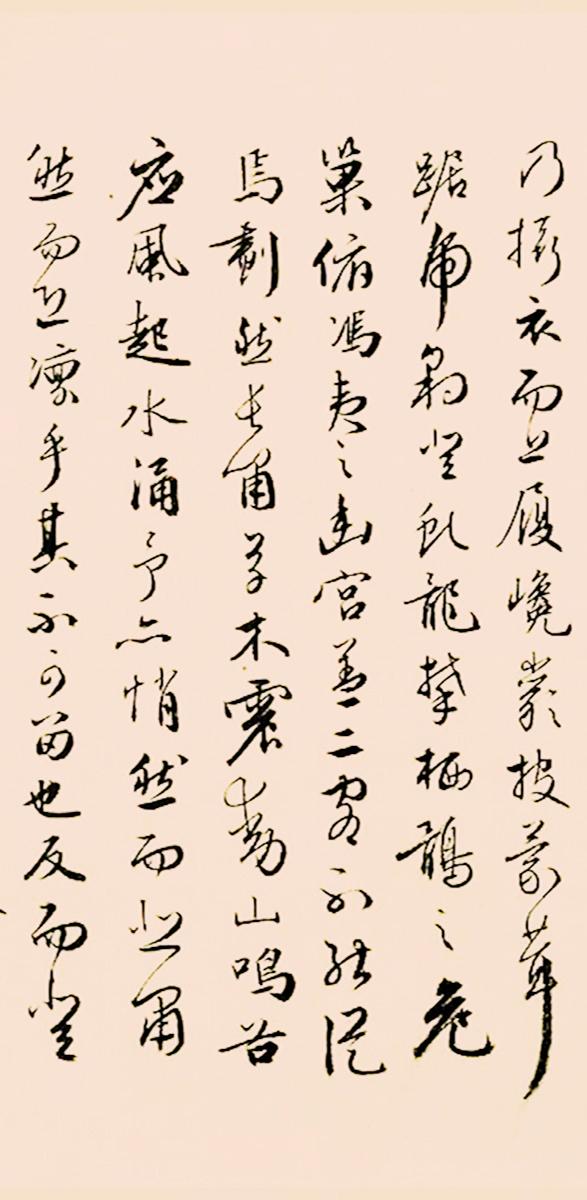 乃攝衣而上履巉巖披蒙茸
踞虎豹登虬龍攀栖鶻之危
巢俯馮夷之幽宮蓋二客不能從
焉劃然長嘯草木震動山鳴谷
應風起水涌予亦悄然而悲肅
然而恐凛乎其不可留也反而登